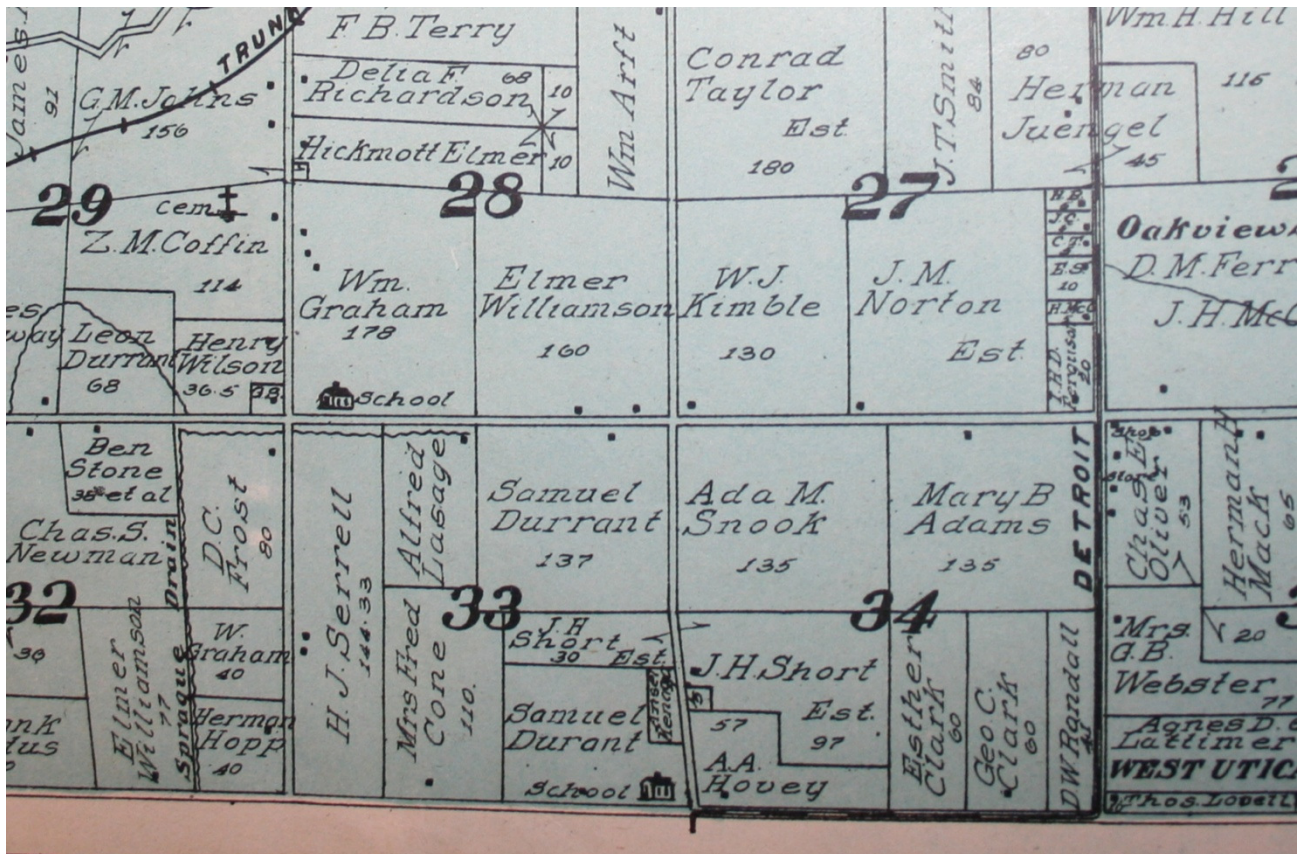 TRUN
James.
91
G.M. Johns
156
F B. Terry
Delia F.
Richardson
68
10
Hickmott Elmer
10
Wm Arft
Conrad
Taylor
Est
180
J.T. Smith
84
80
Herman
Juengel
45
Wm. H. Hill
116
29
28
27
2
cem
Z. M. Coffin
114
Leon
Durrant
68
Henry
Wilson
36.5
G.B.
Wm.
Graham
178
School
Elmer
Williamson
160
W. J.
Kimble
130
J. M.
Norton
Est
H.B.
J.C.
C.T.
E.S.
10
H.McC
Ferguson
20
Oakview
D. M. Ferr
J. H. McC
es
way
Ben
Stone
38 et al
Chas. S.
Newman
D.C.
Frost
80
32
36
Elmer
Williamson
77
Sprague Drain
W.
Graham
40
Herman
Hopp
40
ank
dus
H. J. Serrell
144.33
Alfred
Lasage
33
Mrs Fred
Cone
110.
Samuel
Durrant
137
J. H
Short
30 Est.
Samuel
Durant
School
Ada M.
Snook
135
Mary B
Adams
135
DETROIT
34
J. H. Short
Est.
97
57
A. A.
Hovey
Esther
Clark
60
Geo C.
Clark
60
D W Randall
41
Shop
Chas. E
Oliver
53
Herman H
Mack
65
3
20
Mrs.
G.B.
Webster
77
Agnes D.
Lattimer
WEST UTICA
Thos. Lovell